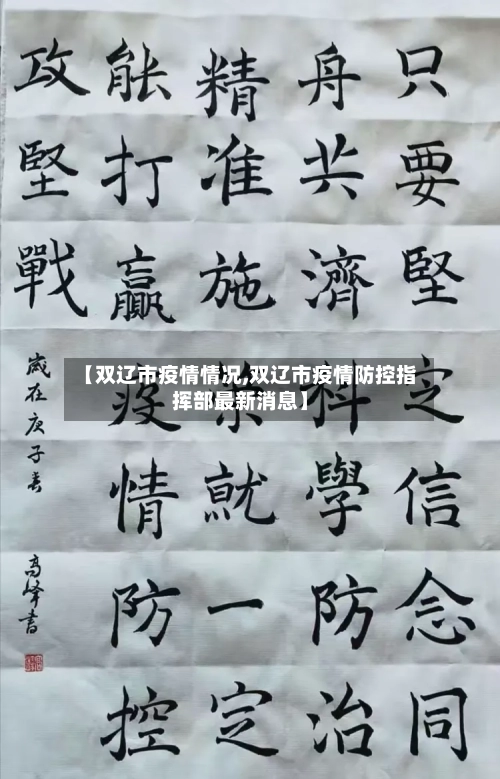 只要堅定信念同
舟共濟科學防治
精准施策就一定
能打贏疫情防控
攻堅戰
歲在庚子春 高峰書
【双辽市疫情情况,双辽市疫情防控指
挥部最新消息】